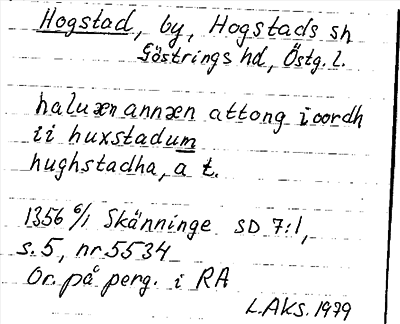 Hogstad, by, Hogstads sh
Göstrings hd, Östg. l.
haluænannæn attong i oordh
ii huxstadum
hughstadha, a t.
1356 6/1 Skänninge SD 7:1,
s. 5, nr 5534
Or. på perg. i RA
L. Aks. 1979